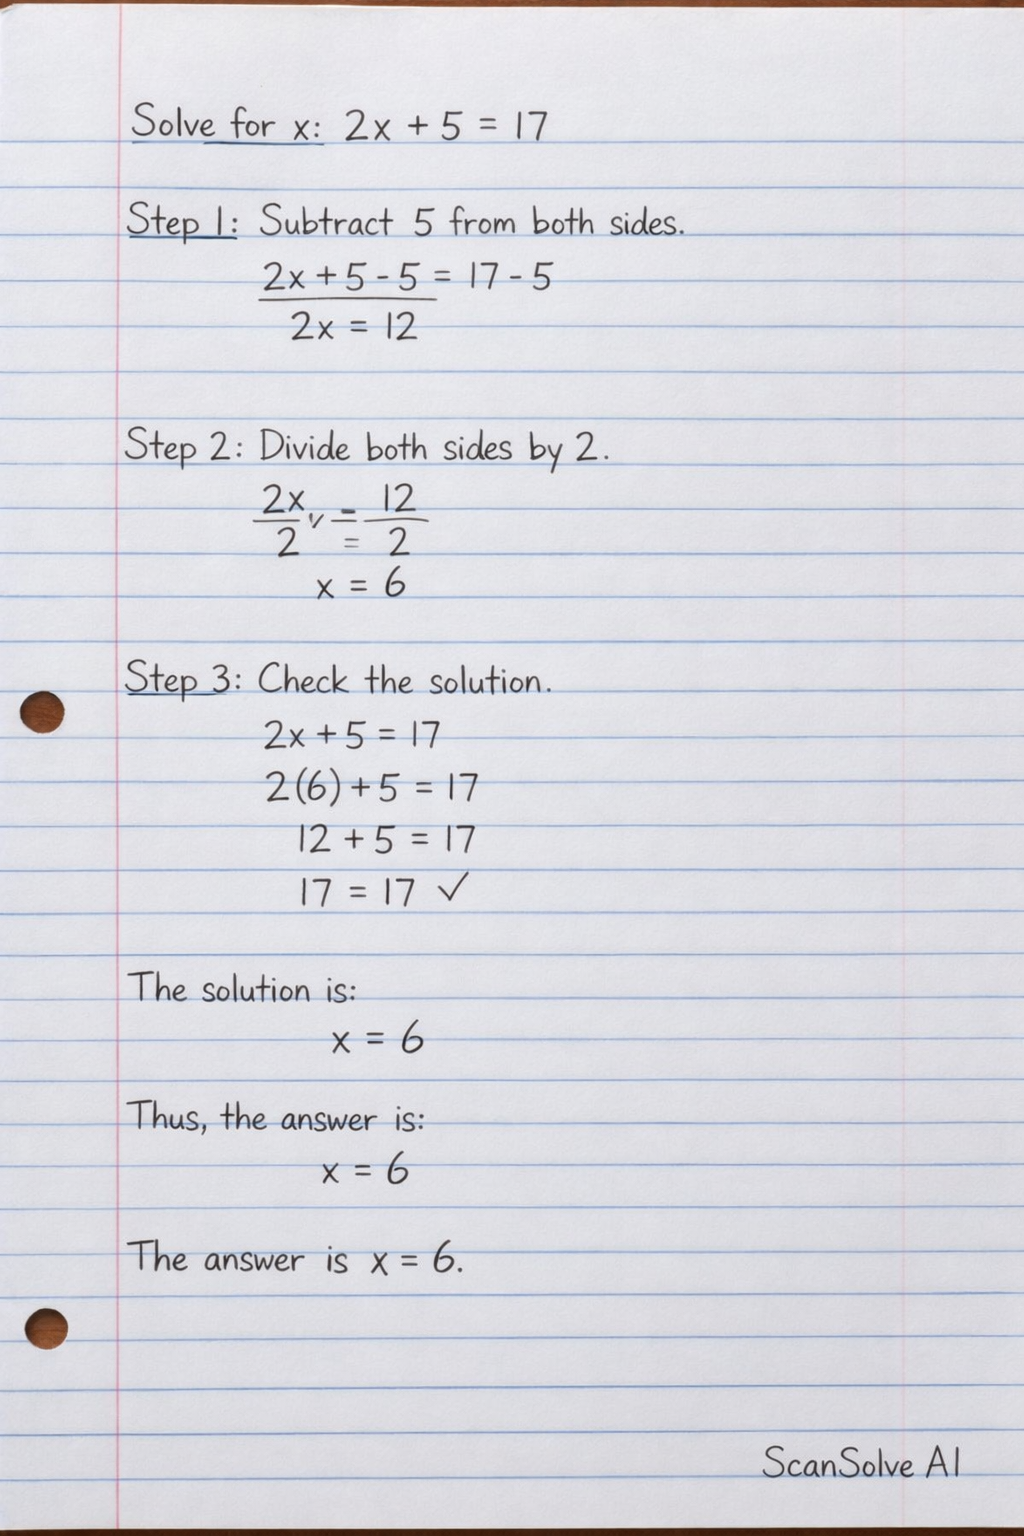 Solve for x: 2x + 5 = 17
Step 1: Subtract 5 from both sides.
2x + 5 - 5 = 17 - 5
2x = 12
Step 2: Divide both sides by 2.
2x = 12
2 = 2
x = 6
Step 3: Check the solution.
2x + 5 = 17
2(6) + 5 = 17
12 + 5 = 17
17 = 17 ✓
The solution is:
x = 6
Thus, the answer is:
x = 6
The answer is x = 6.
ScanSolve AI